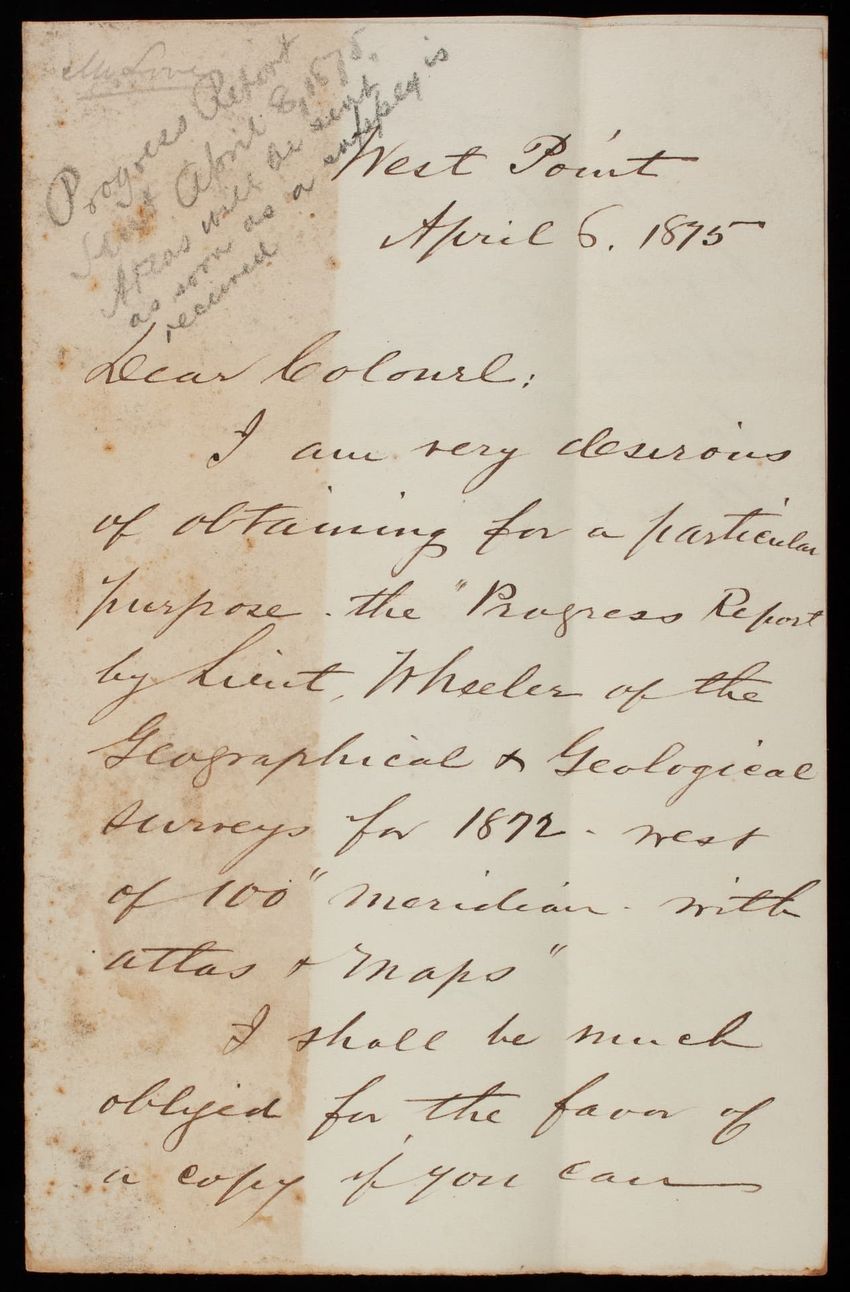 Progress Report
sent April 8, 1875.
Areas will be sent
as soon as a supply is
received
West Point
April 6. 1875
Dear Colonel:
I am very desirous
of obtaining for a particular
purpose - the "Progress Report
by Lieut. Wheeler of the
Geographical & Geological
surveys for 1872 - west
of 100" meridian - with
attas & maps"
I shall be much
obliged for the favor of
a copy if you can